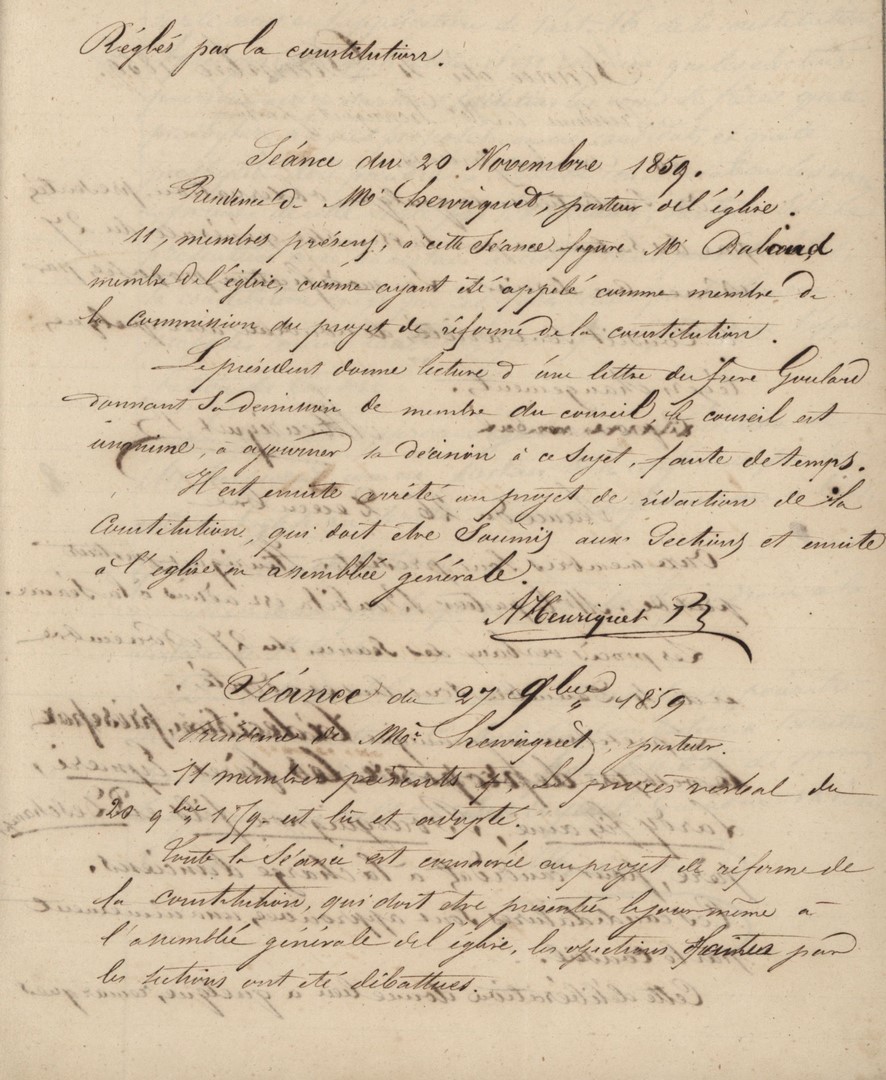 Réglés par la constitution.
Séance du 20 Novembre 1859.
Présidence de Mr Henriquet, pasteur de l'église.
11, membres présens, à cette Séance figure Mr Rabaud
membre de l'église, comme ayant été appelé comme membre de
la commission du projet de réforme de la constitution.
Le président donne lecture d'une lettre du frere Goulard
donnant sa demission de membre du conseil, le conseil est
unanime, à ajourner sa décision à ce sujet, faute de temps.
Il est ensuite arrêté au projet de rédaction de la
Constitution, qui doit être Soumis aux Sections et ensuite
à l'eglise en assemblée générale.
AHenriquet
Séance du 27 9bre 1859
Présidence de Mr. Henriquet, pasteur.
11 membres présents Le procès verbal du
20 9bre est lu et adopté.
Toute la Séance est consacrée au projet de réforme de
la constitution, qui doit être présentée le jour même à
l'assemblée générale de l'église, les objections faites par
les sections ont été débattues.